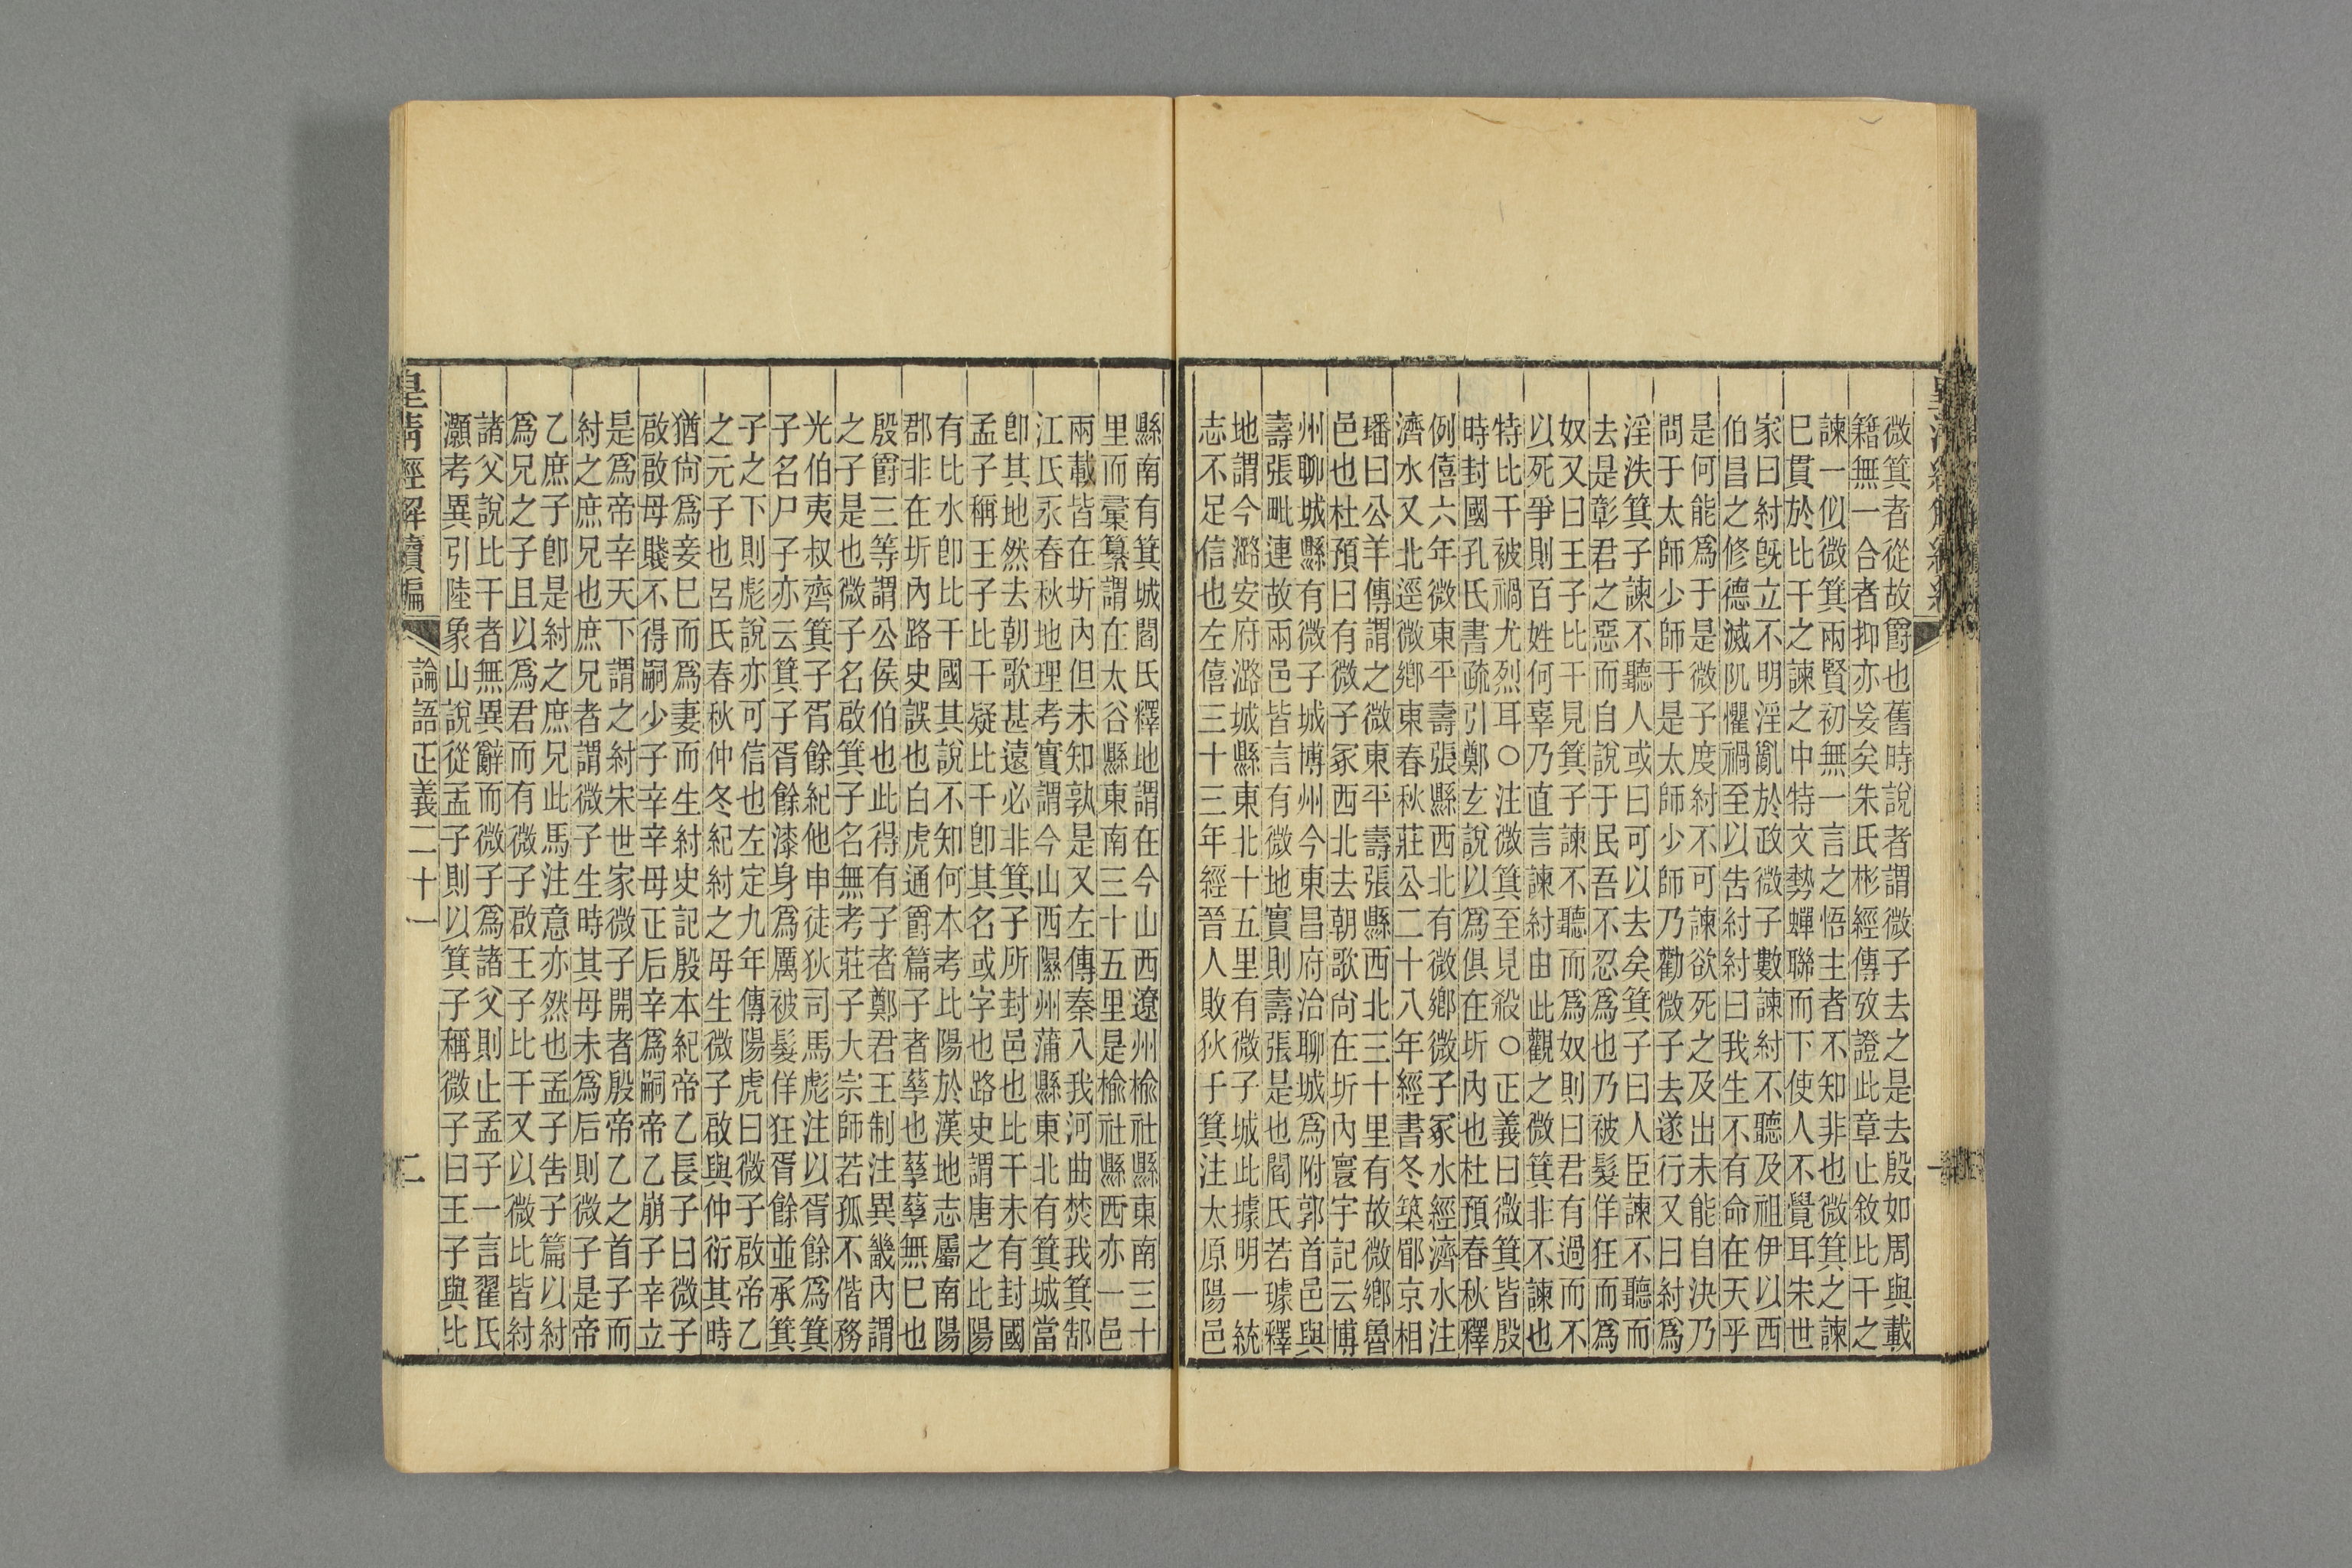 微箕者從故爵也舊時說者謂微子去之是去殷如周與載
籍無一合者抑亦妄矣朱氏彬經傳攷證此章止敘比干之
諫一似微箕兩賢初無一言之悟主者不知非也微箕之諫
巳貫於比干之諫之中特文勢蟬聯而下使人不覺耳朱世
家曰紂旣立不明淫亂於政微子數諫紂不聽及祖伊以西
伯昌之修德滅阢懼禍至以告紂紂曰我生不有命在天乎
是何能爲于是微子度紂不可諫欲死之及出未能自決乃
問于太師少師于是太師少師乃勸微子去遂行又曰紂爲
淫泆箕子諫不聽人或曰可以去矣箕子曰人臣諫不聽而
去是彰君之惡而自說于民吾不忍爲也乃被髮佯狂而爲
奴又曰王子比干見箕子諫不聽而爲奴則曰君有過而不
以死爭則百姓何辜乃直言諫紂由此觀之微箕非不諫也
特比干被禍尤烈耳○注微箕至見殺○正義曰微箕皆殷
時封國孔氏書疏引鄭玄說以爲俱在圻內也杜預春秋釋
例僖六年微東平壽張縣西北有微鄉微子冢水經濟水注
濟水又北逕微鄉東春秋莊公二十八年經書冬築郿京相
璠曰公羊傳謂之微東平壽張縣西北三十里有故微鄉魯
邑也杜預曰有微子冢西北去朝歌尙在圻內寰宇記云博
州聊城縣有微子城博州今東昌府治聊城爲附郭首邑與
壽張毗連故兩邑皆言有微地實則壽張是也閻氏若璩釋
地謂今潞安府潞城縣東北十五里有微子城此據明一統
志不足信也左僖三十三年經晉人敗狄于箕注太原陽邑
縣南有箕城閻氏釋地謂在今山西遼州榆社縣東南三十
里而彚纂謂在太谷縣東南三十五里是榆社縣西亦一邑
兩載皆在圻內但未知孰是又左傳秦入我河曲焚我箕郜
江氏永春秋地理考實謂今山西隰州蒲縣東北有箕城當
卽其地然去朝歌甚遠必非箕子所封邑也比干未有封國
孟子稱王子比干疑比干卽其名或字也路史謂唐之比陽
有比水卽比干國其說不知何本考比陽於漢地志屬南陽
郡非在圻內路史誤也白虎通爵篇子者孳也孳孳無巳也
殷爵三等謂公侯伯也此得有子者鄭君王制注異畿內謂
之子是也微子名啟箕子名無考莊子大宗師若狐不偕務
光伯夷叔齊箕子胥餘紀他申徒狄司馬彪注以胥餘爲箕
子名尸子亦云箕子胥餘漆身爲厲被髮佯狂胥餘並承箕
子之下則彪說亦可信也左定九年傳陽虎曰微子啟帝乙
之元子也呂氏春秋仲冬紀紂之母生微子啟與仲衍其時
猶尙爲妾巳而爲妻而生紂史記殷本紀帝乙長子曰微子
啟啟母賤不得嗣少子辛辛母正后辛爲嗣帝乙崩子辛立
是爲帝辛天下謂之紂宋世家微子開者殷帝乙之首子而
紂之庶兄也庶兄者謂微子生時其母未爲后則微子是帝
乙庶子卽是紂之庶兄此馬注意亦然也孟子告子篇以紂
爲兄之子且以爲君而有微子啟王子比干又以微比皆紂
諸父說比干者無異辭而微子爲諸父則止孟子一言翟氏
灝考異引陸象山說從孟子則以箕子稱微子曰王子與比
皇清經解續編
論語正義二十一
二